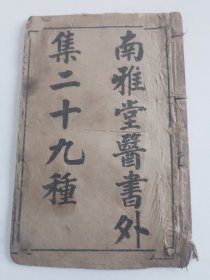 南雅堂醫書外
集二十九種